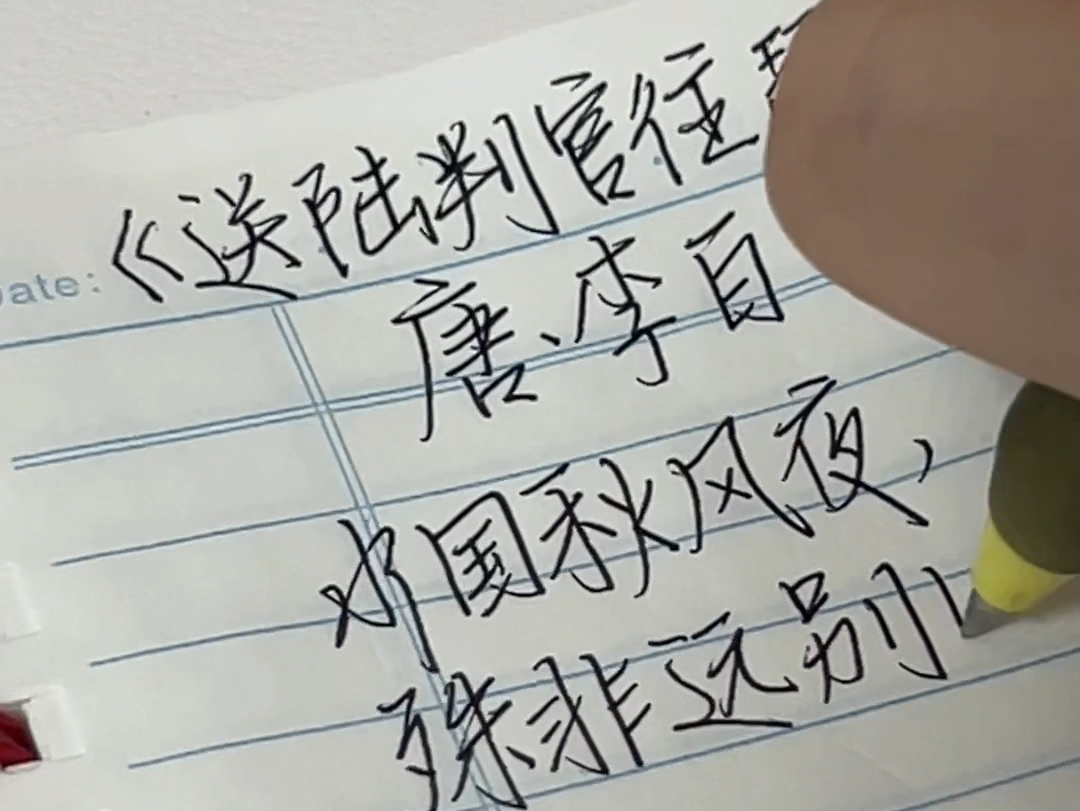 Date:
《送陆判官往
唐、李白
水国秋风夜，
殊非远别